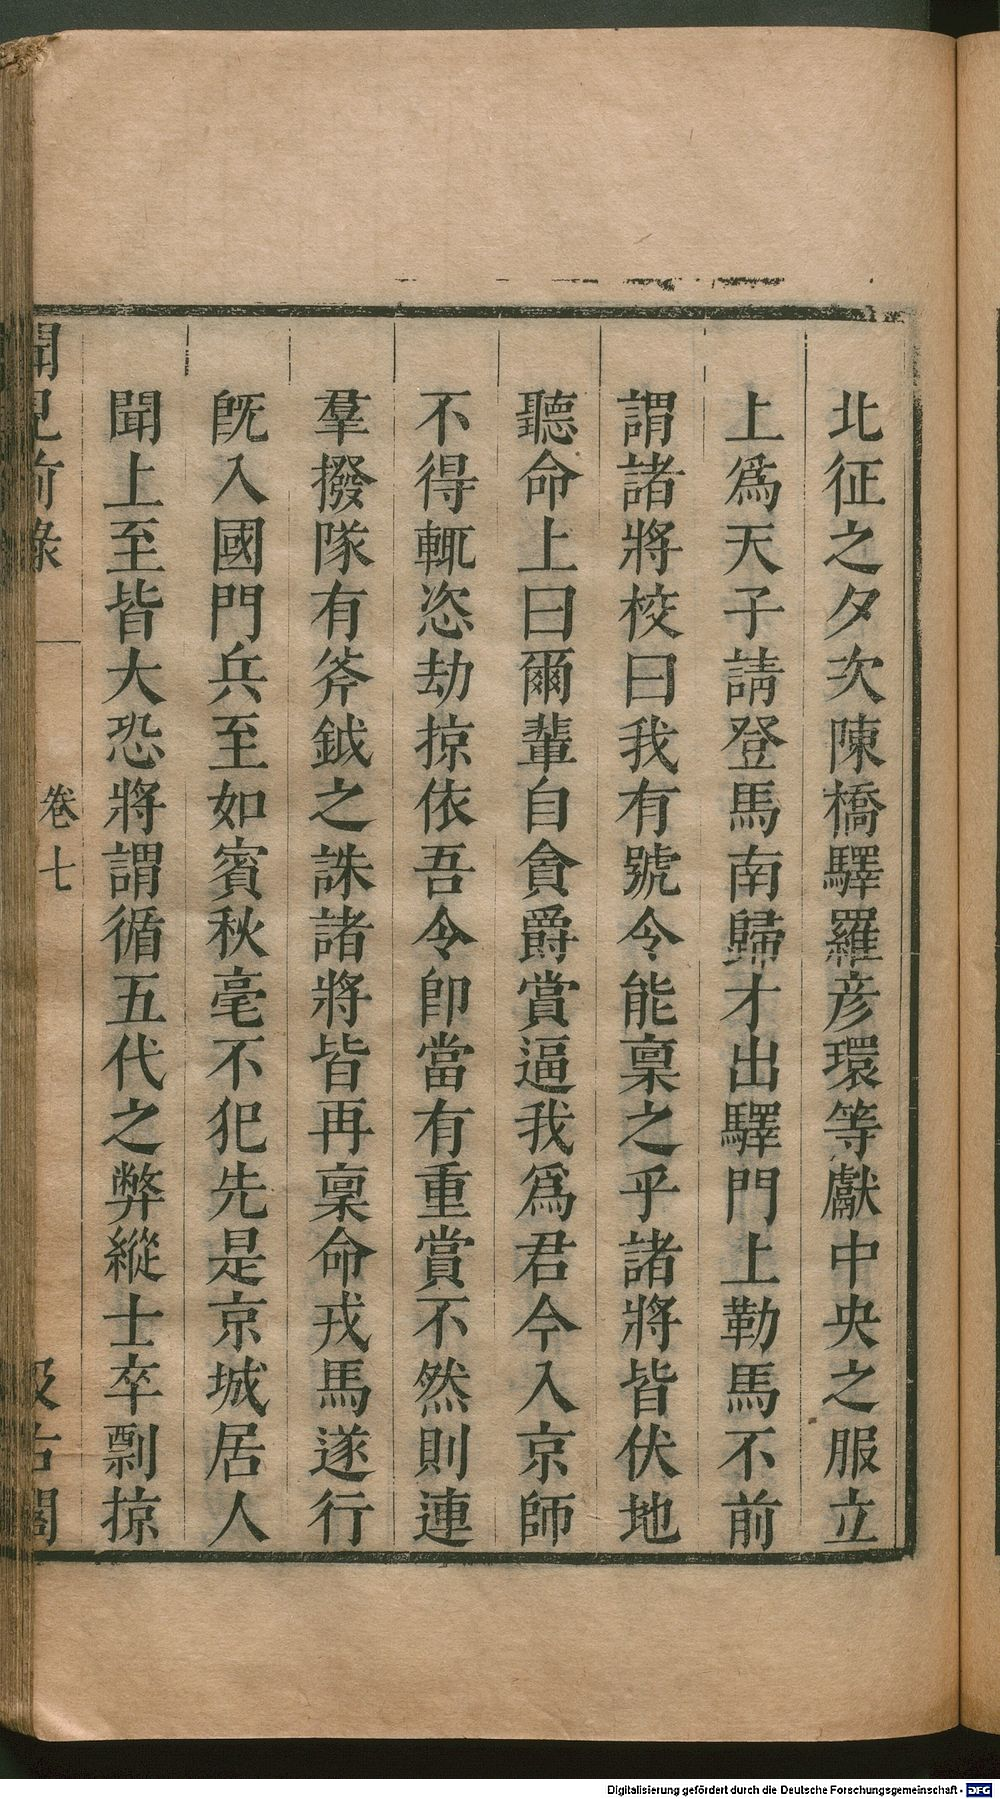 北征之夕次陳橋驛羅彦環等獻中央之服立
上爲天子請登馬南歸才出驛門上勒馬不前
謂諸將校曰我有號令能稟之乎諸將皆伏地
聽命上曰爾輩自貪爵賞逼我爲君今入京師
不得輒恣劫掠依吾令卽當有重賞不然則連
羣撥隊有斧鉞之誅諸將皆再稟命戎馬遂行
旣入國門兵至如賓秋毫不犯先是京城居人
聞上至皆大恐將謂循五代之弊縱士卒剽掠
聞見前錄 卷七 汲古閣
Digitalisierung gefördert durch die Deutsche Forschungsgemeinschaft - DFG